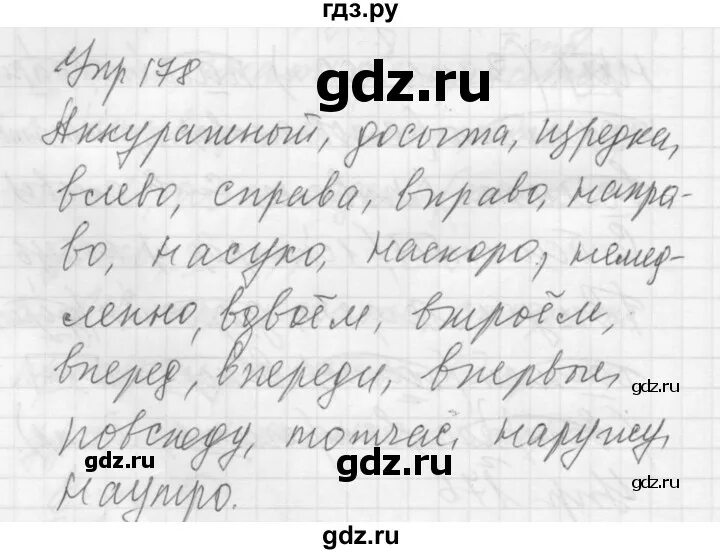 гдз.ру
Упр 178
gdz.ru
Аккуратный, досыта, изредка,
влево, справа, вправо, напра-
во, насухо, наскоро, немед-
ленно, вдвоём, втроём,
вперед, впереди, впервые,
gdz.ru
повсюду, тотчас, наружу,
gdz.ru
gdz.ru
gdz.ru
наутро.
gdz.ru